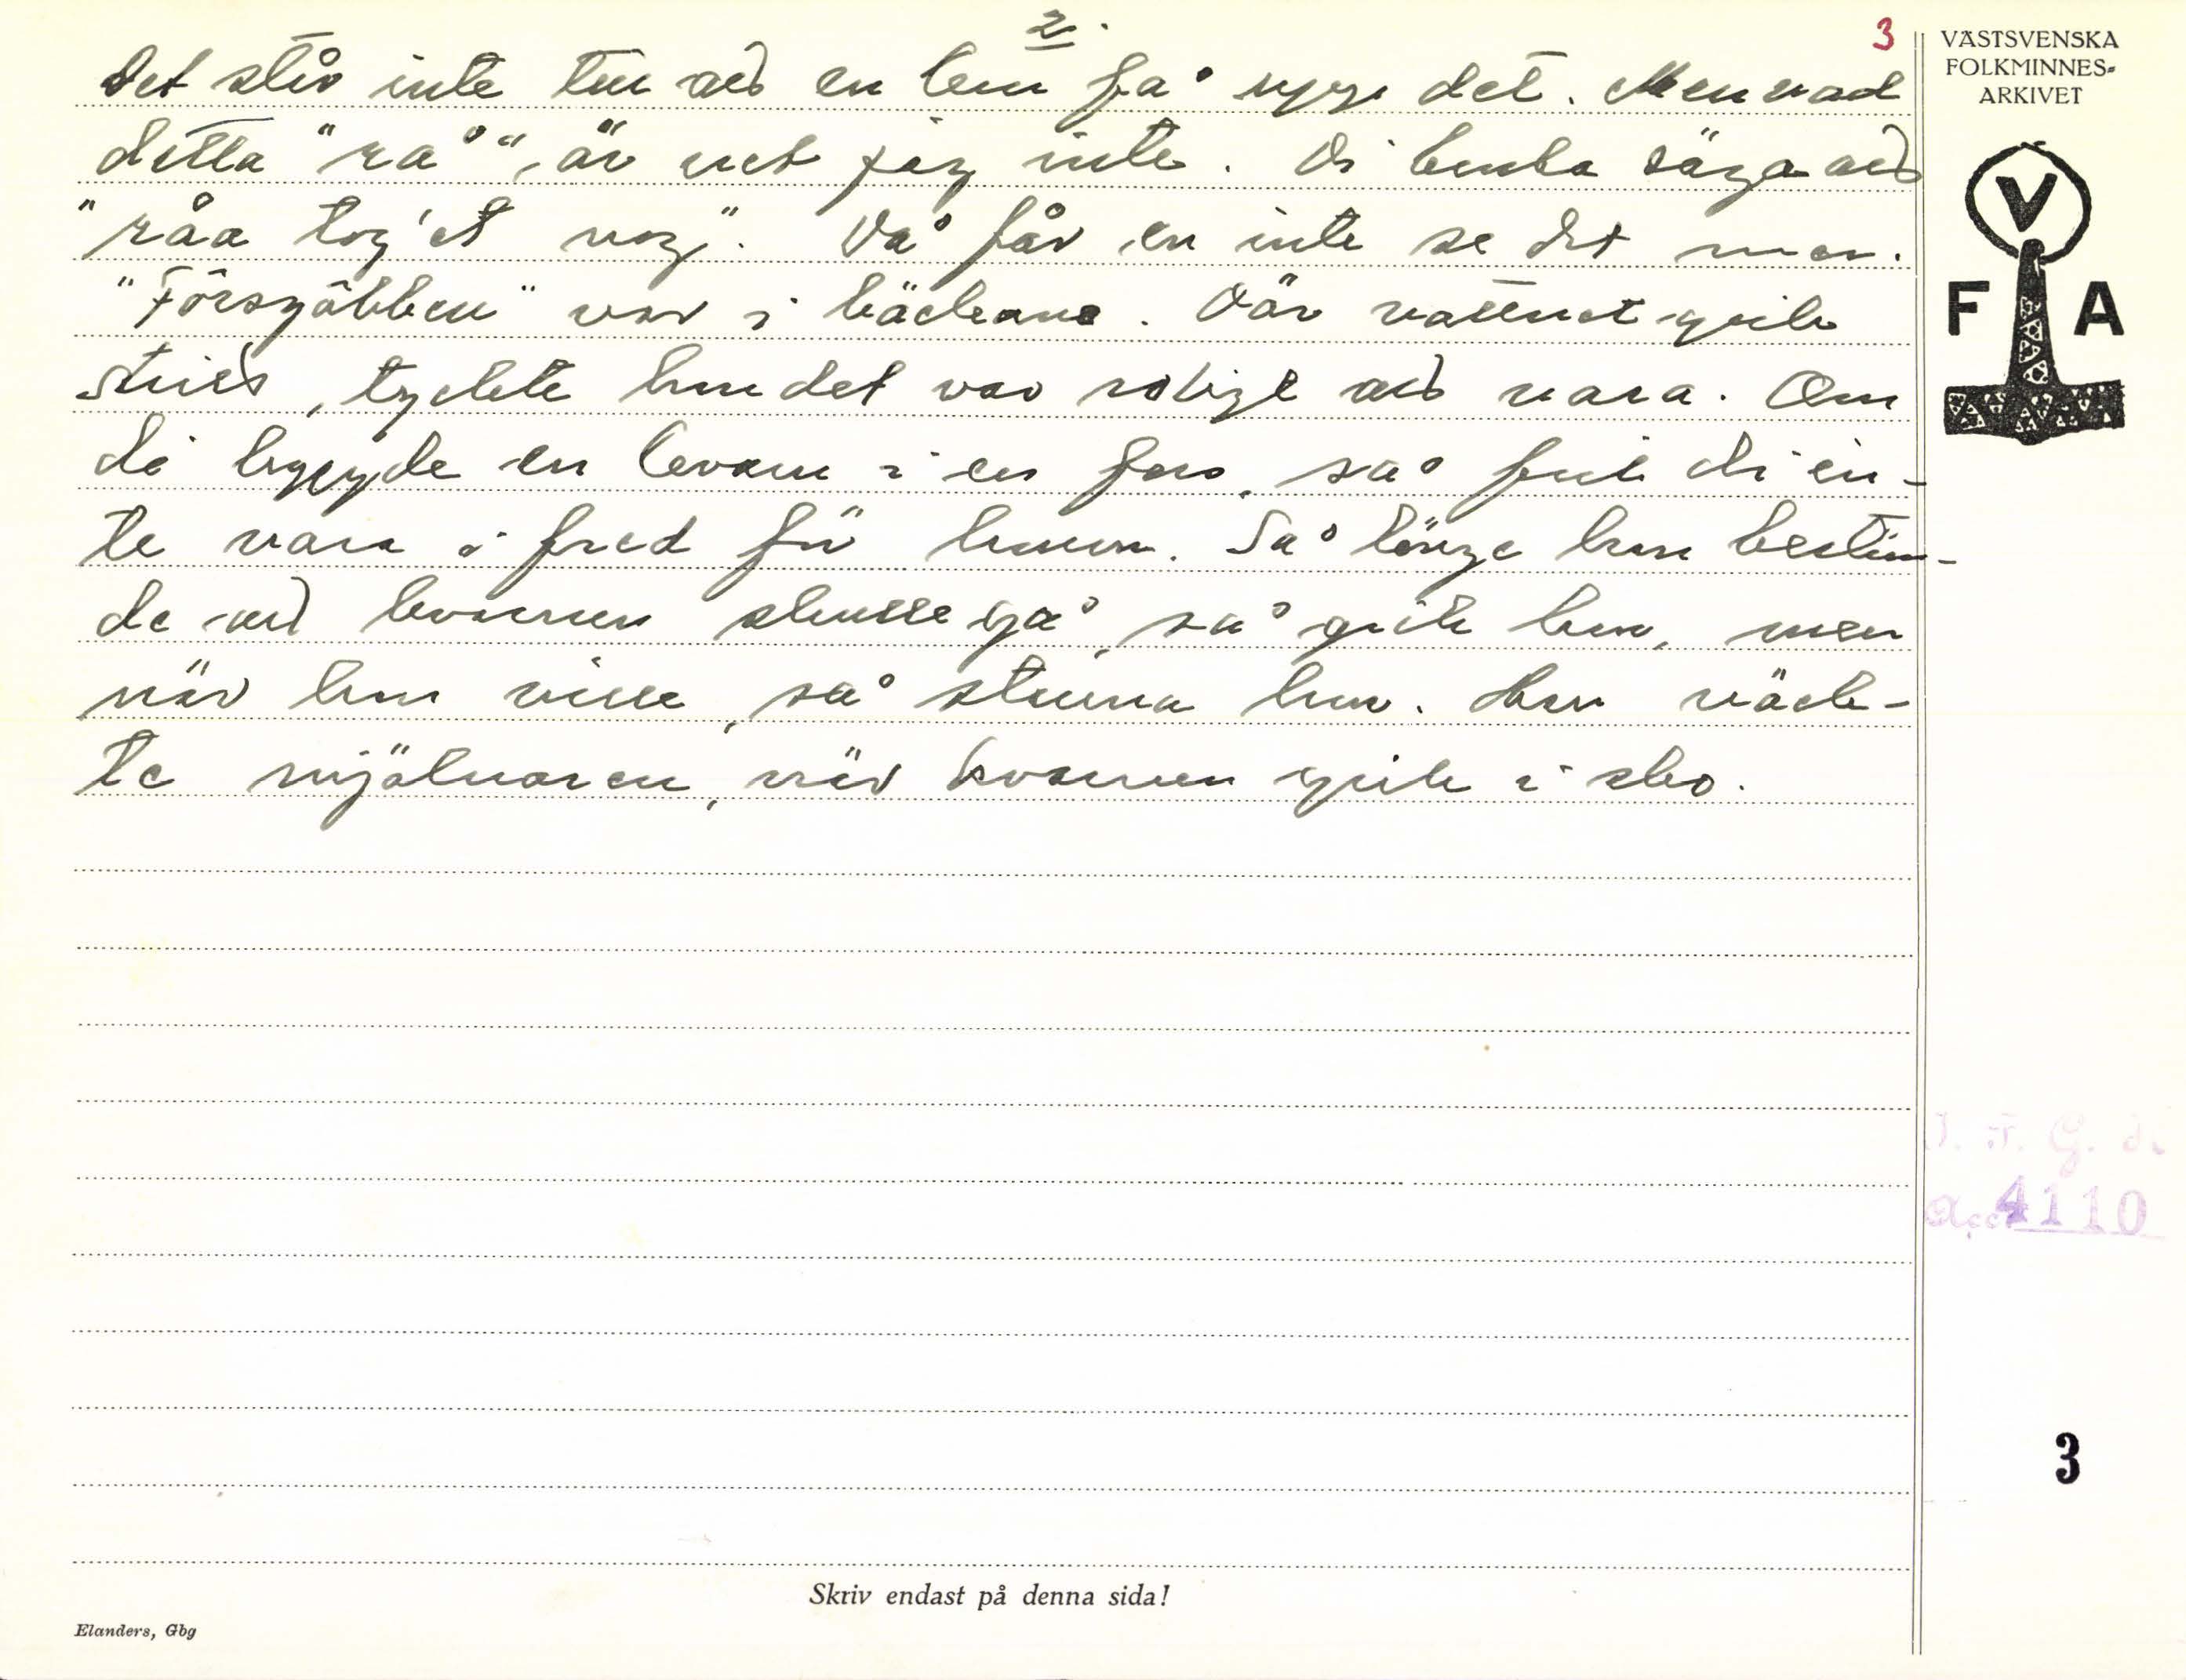 2.
3
det slår inte till at en kan få syn på det. Men vad
detta "rå", är vet jag inte. Di bruka säga at
"råa tog'et väg". Då får en inte se det mer.
"Försgubben" var i bäckane. Där vattnet gick
strids, tyckte hun det var roligt at vara. Om
di byggde en kvarn i en fors, så fick di in-
te vara i fred för henne. Så länge hun bestäm-
de at kvarnen skulle gå, så gick hun, men
när hun ville, så stanna hun. Hun väck-
te mjölnaren, när kvarnen gick i sko.
VÄSTSVENSKA
FOLKMINNES-
ARKIVET
V
F A
I. F. G. H.
Acc. 4110
3
Skriv endast på denna sida!
Elanders, Gbg